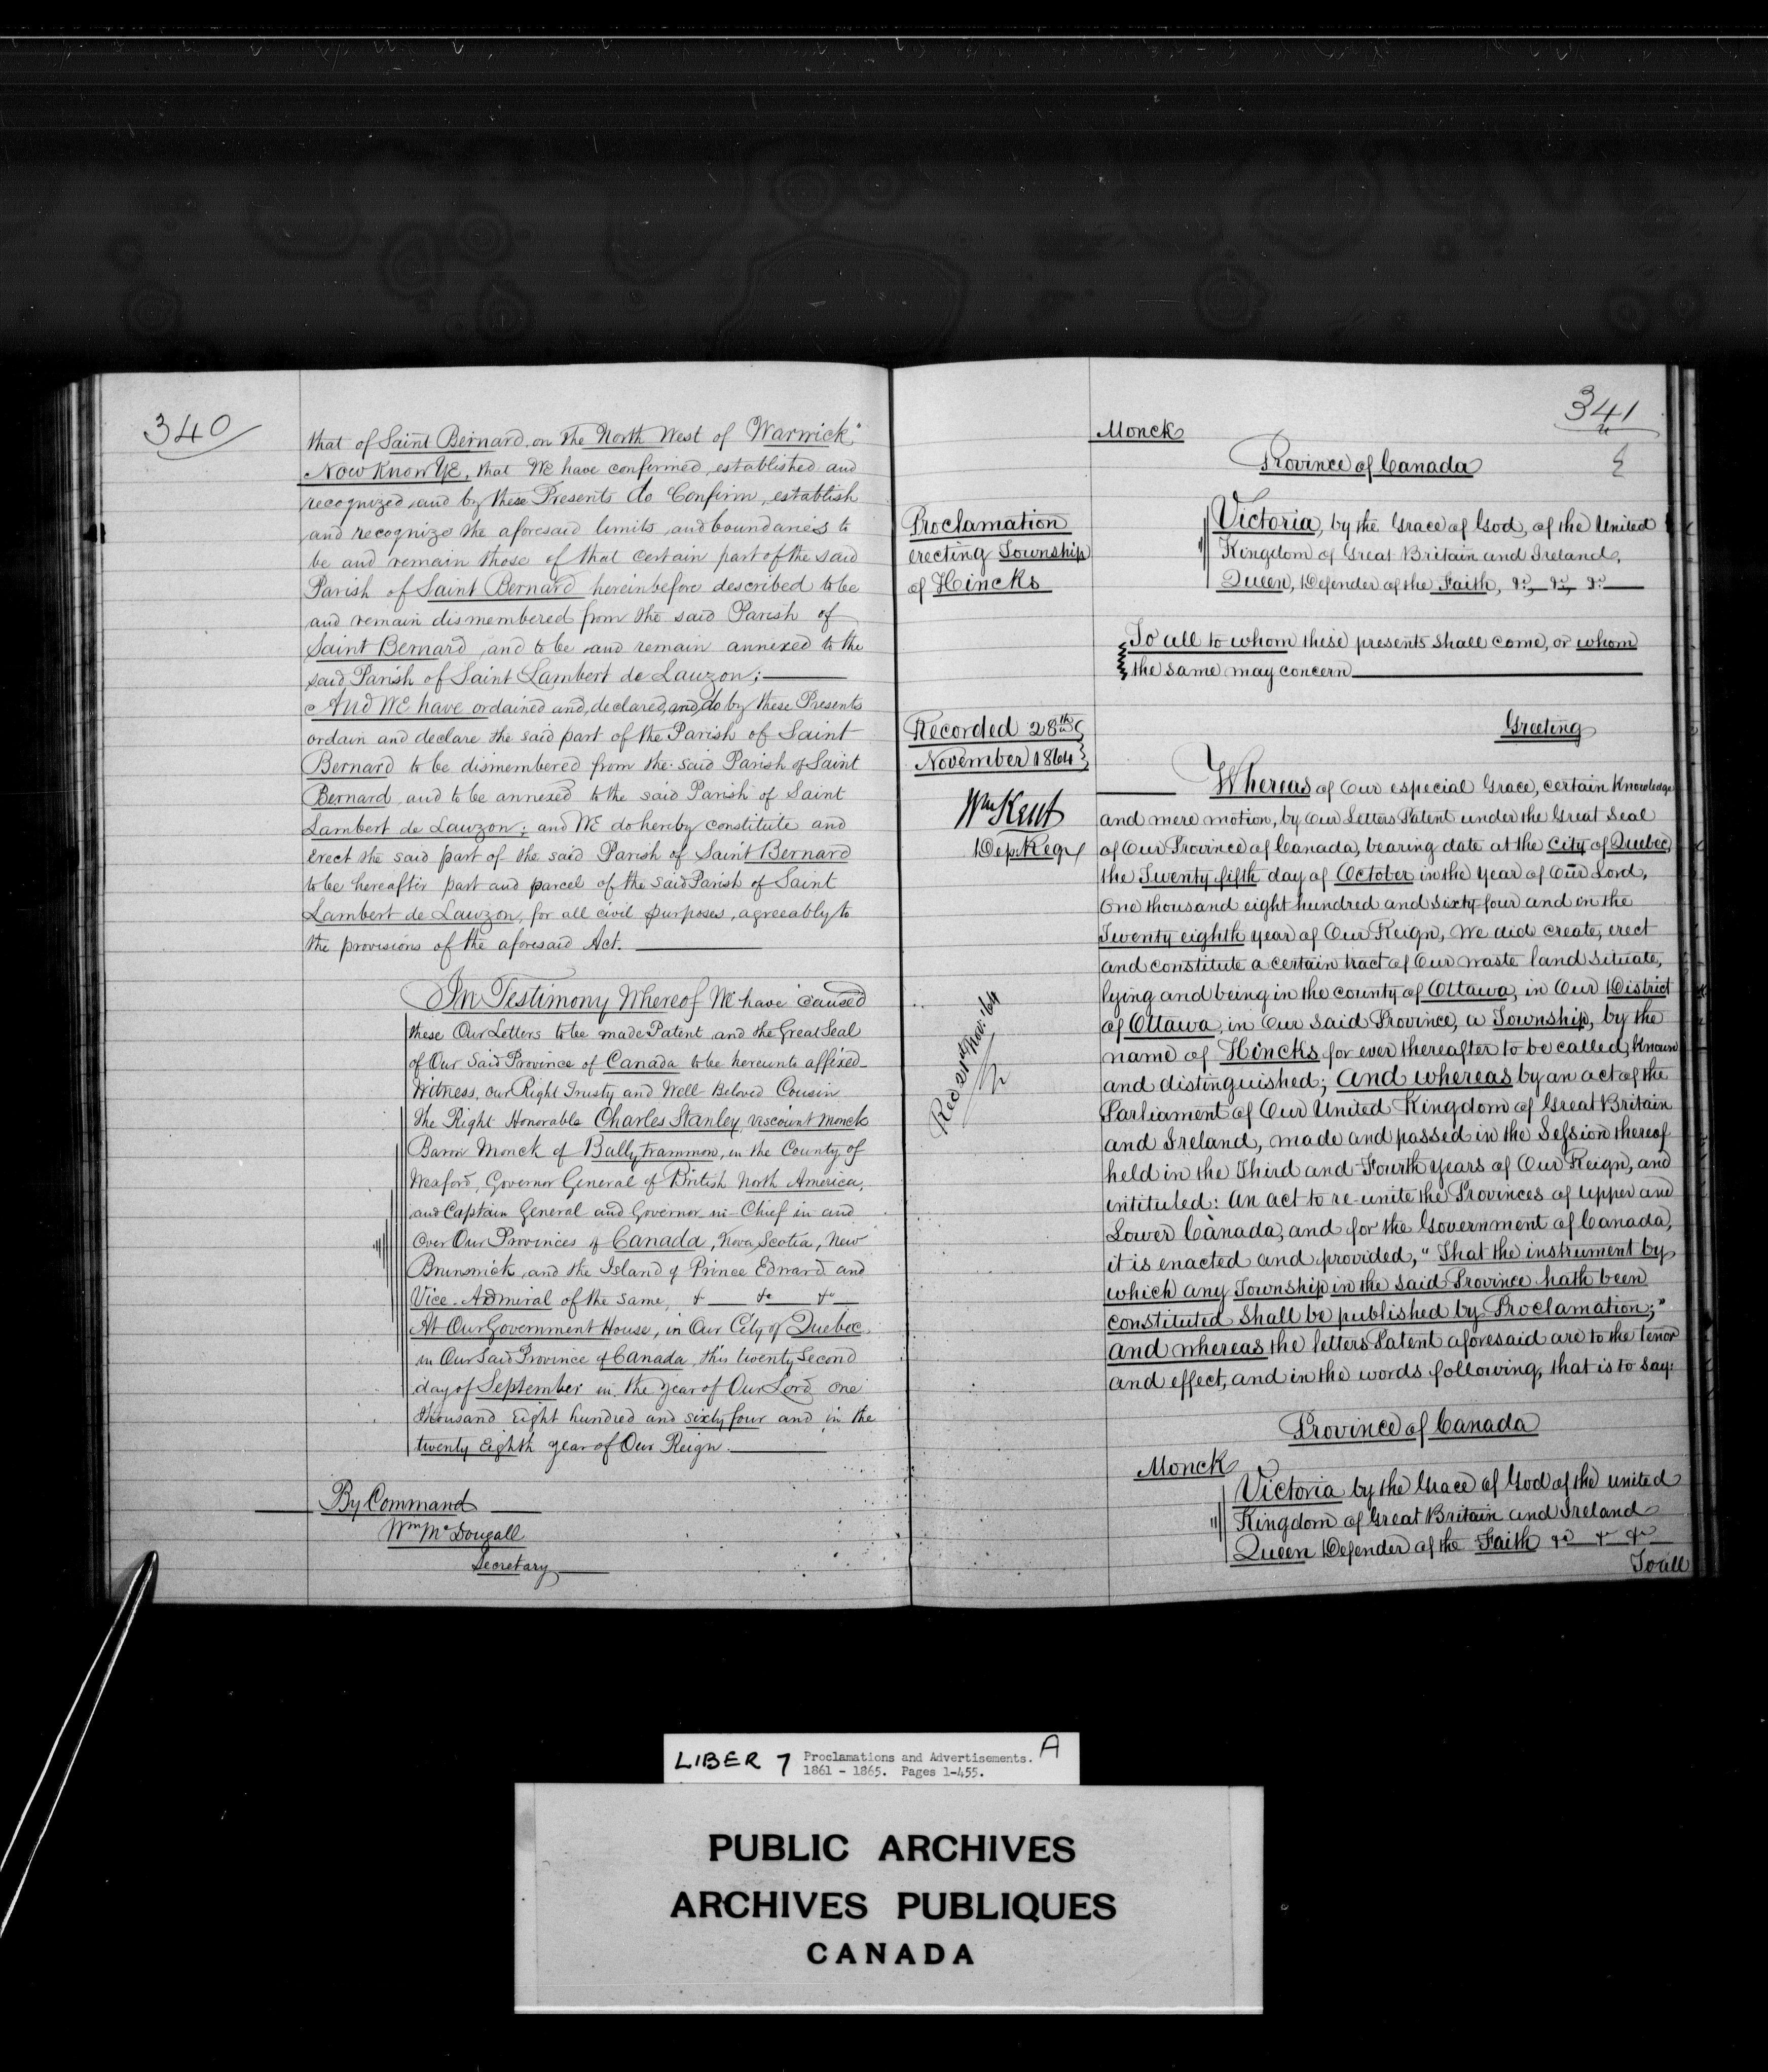 340
that of Saint Bernard, on the North West of Warwick."
Now Know Ye, that We have confirmed, established and
recognized and by these Presents do Confirm, establish
and recognize the aforesaid limits and boundaries to
be and remain those of that certain part of the said
Parish of Saint Bernard hereinbefore described to be
and remain dismembered from the said Parish of
Saint Bernard, and to be and remain annexed to the
said Parish of Saint Lambert de Lauzon;
And We have ordained and, declared, and, do by these Presents
ordain and declare the said part of the Parish of Saint
Bernard to be dismembered from the said Parish of Saint
Bernard, and to be annexed to the said Parish of Saint
Lambert de Lauzon; and We do hereby constitute and
Erect the said part of the said Parish of Saint Bernard
to be hereafter part and parcel of the said Parish of Saint
Lambert de Lauzon, for all civil purposes, agreeably to
the provisions of the aforesaid Act.
In Testimony Whereof We have caused
these Our Letters to be made Patent and the Great Seal
of Our Said Province of Canada to be hereunto affixed
Witness, our Right Trusty and Well-Beloved Cousin
The Right Honorable Charles Stanley Viscount Monck
Baron Monck of Ballytrammon, in the County of
Wexford, Governor General of British North America,
and Captain General and Governor-in-Chief in and
Over Our Provinces of Canada, Nova Scotia, New
Brunswick, and the Island of Prince Edward and
Vice-Admiral of the same, & &c &c
At Our Government House, in Our City of Quebec,
in Our Said Province of Canada, this twenty Second
day of September in the year of Our Lord one
thousand Eight hundred and sixty four and in the
twenty Eighth year of Our Reign.
By Command
Wm McDougall
Secretary
341
Monck
Province of Canada
Proclamation
erecting Township
of Hincks
Victoria, by the Grace of God, of the United
Kingdom of Great Britain and Ireland,
Queen, Defender of the Faith, &c, &c, &c
To all to whom these presents shall come, or whom
the same may concern
Recorded 28th
November 1864
Wm Kent
Dep. Regr
Greeting
Whereas of Our especial Grace, certain Knowledge
and mere motion, by Our Letters Patent under the Great Seal
of Our Province of Canada, bearing date at the City of Quebec,
the Twenty fifth day of October in the Year of Our Lord,
One thousand eight hundred and sixty-four and in the
Twenty eighth year of Our Reign, We did create, erect
and constitute a certain tract of Our waste land situate,
lying and being in the county of Ottawa, in Our District
of Ottawa, in Our said Province, a Township, by the
name of Hincks for ever thereafter to be called, known
and distinguished; And whereas by an act of the
Parliament of Our United Kingdom of Great Britain
and Ireland, made and passed in the Session thereof
held in the Third and Fourth years of Our Reign, and
intituled: An act to re-unite the Provinces of Upper and
Lower Canada, and for the Government of Canada,
it is enacted and provided, "That the instrument by
which any Township in the said Province hath been
constituted Shall be published by Proclamation;"
And whereas the letters Patent aforesaid are to the tenor
and effect, and in the words following, that is to say:
Rec 21st Nov: 64
Province of Canada
Monck
Victoria by the Grace of God of the United
Kingdom of Great Britain and Ireland
Queen Defender of the Faith &c &c &c
To all
LIBER 7 Proclamations and Advertisements. A
1861 - 1865. Pages 1-455.
PUBLIC ARCHIVES
ARCHIVES PUBLIQUES
CANADA